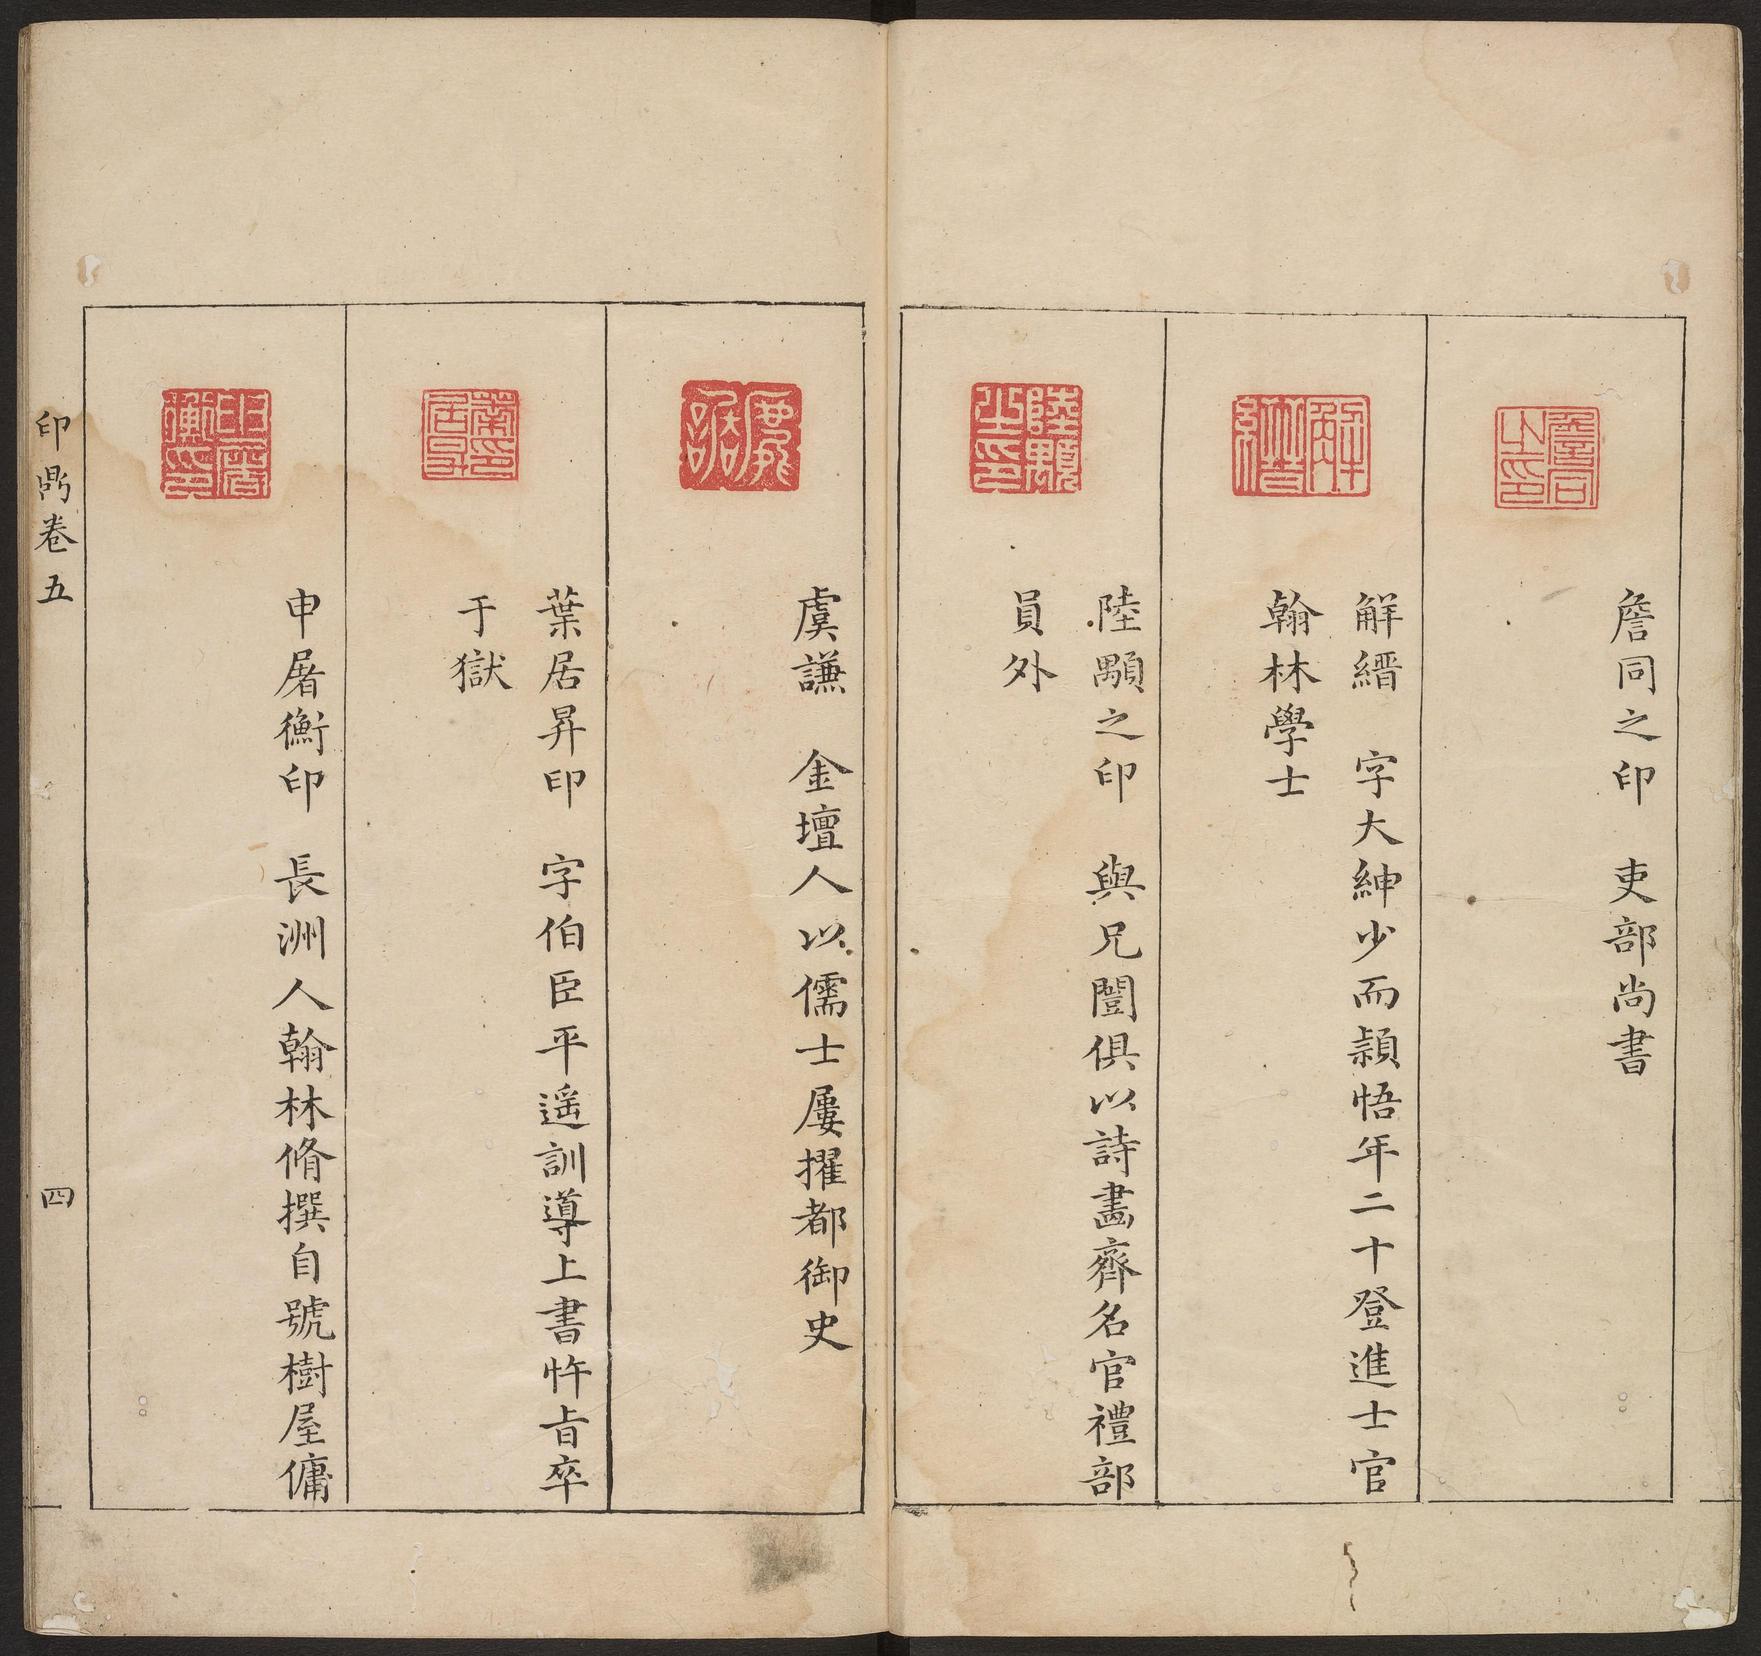 詹同之印　吏部尚書
解縉　字大紳少而穎悟年二十登進士官
翰林學士
陸顒之印　與兄闓俱以詩畫齊名官禮部
員外
虞謙　金壇人以儒士屢擢都御史
葉居昇印　字伯臣平遥訓導上書忤旨卒
于獄
申屠衡印　長洲人翰林脩撰自號樹屋傭
印鼎卷五
四